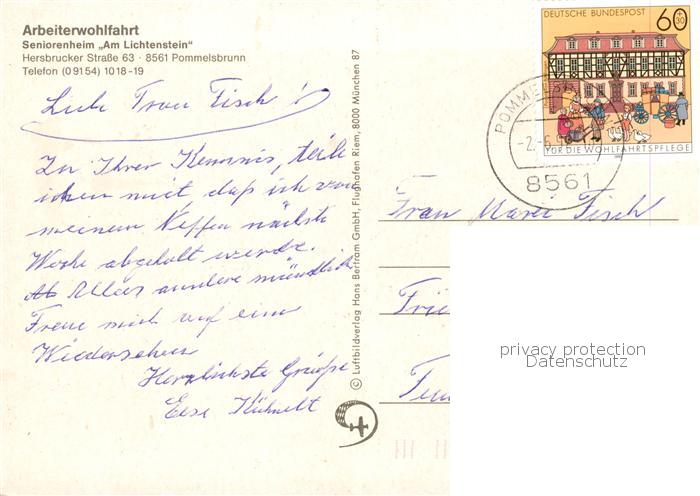 Arbeiterwohlfahrt
Seniorenheim „Am Lichtenstein"
Hersbrucker Straße 63 · 8561 Pommelsbrunn
Telefon (09154) 1018-19
Liebe Frau Fisch!
Zu Ihrer Kenntnis, teile
ihnen mit daß ich von
meinem Neffen nächste
Woche abgeholt werde.
Alles andere mündlich
Freue mich auf ein
Wiedersehen
Herzlichste Grüße
Else Kühnelt
© Luftbildverlag Hans Bertram GmbH, Flughafen Riem, 8000 München 87
DEUTSCHE BUNDESPOST
60+30
FÜR DIE WOHLFAHRTSPFLEGE
POMME
-2.-6.
8561
Frau Marei Fisch
privacy protection
Datenschutz